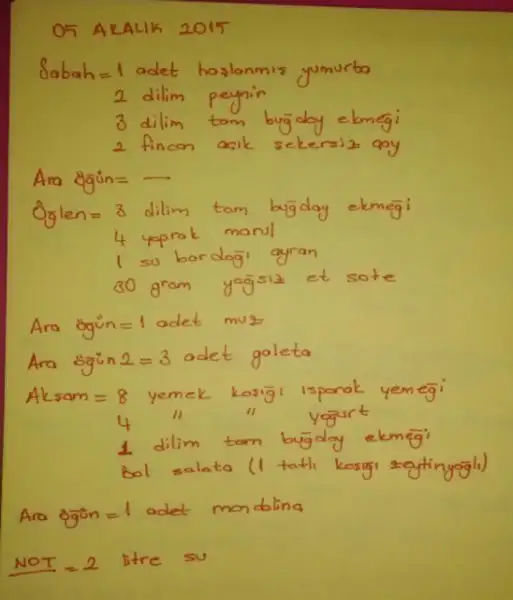 05 ARALIK 2015
Sabah = 1 adet haşlanmış yumurta
2 dilim peynir
3 dilim tam buğday ekmeği
2 fincan açık şekersiz çay
Ara öğün = —
Öğlen = 3 dilim tam buğday ekmeği
4 yaprak marul
1 su bardağı ayran
30 gram yağsız et sote
Ara öğün = 1 adet muz
Ara öğün 2 = 3 adet galeta
Akşam = 8 yemek kaşığı ıspanak yemeği
4 " " yoğurt
1 dilim tam buğday ekmeği
Bol salata (1 tatlı kaşığı zeytinyağlı)
Ara öğün = 1 adet mandalina
NOT = 2 litre su